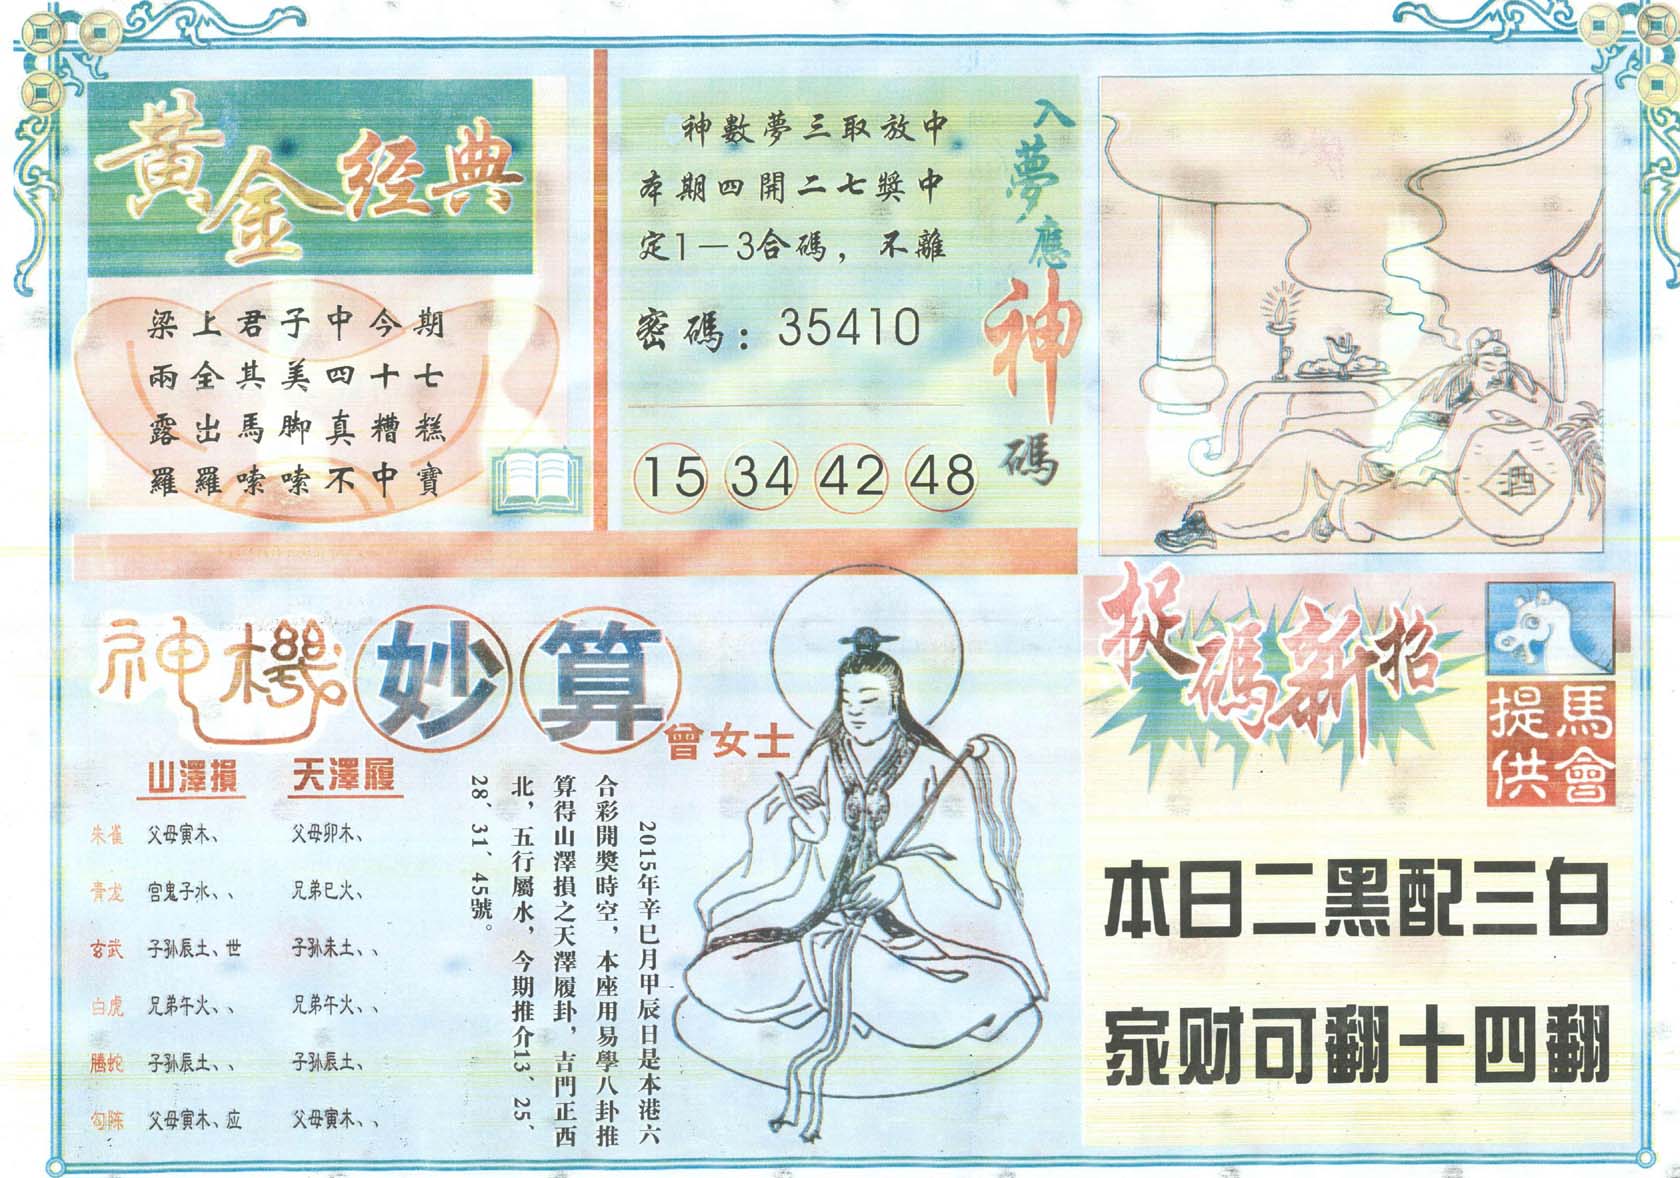 黃金經典
梁上君子中今期
兩全其美四十七
露出馬脚真糟糕
羅羅嗦嗦不中寶
神數夢三取放中
本期四開二七獎中
定1—3合碼，不離
密碼：35410
15 34 42 48
入夢應神碼
酒
神機妙算
曾女士
山澤損 天澤履
朱雀 父母寅木、 父母卯木、
青龙 官鬼子水、、 兄弟巳火、
玄武 子孙辰土、世 子孙未土、、
白虎 兄弟午火、、 兄弟午火、、
腾蛇 子孙辰土、、 子孙辰土、
勾陈 父母寅木、应 父母寅木、、
2015年辛巳月甲辰日是本港六
合彩開獎時空，本座用易學八卦推
算得山澤損之天澤履卦，吉門正西
北，五行屬水，今期推介13、25、
28、31、45號。
捉碼新招
馬會
提供
本日二黑配三白
家财可翻十四翻